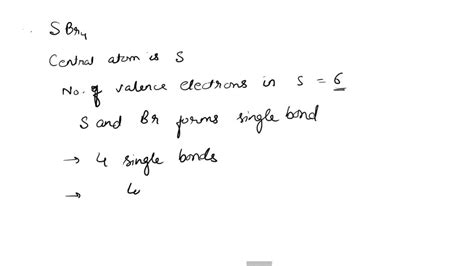 SBr₄
Central atom is S
No. of valence electrons in S = 6
S and Br forms single bond
→ 4 single bonds
→